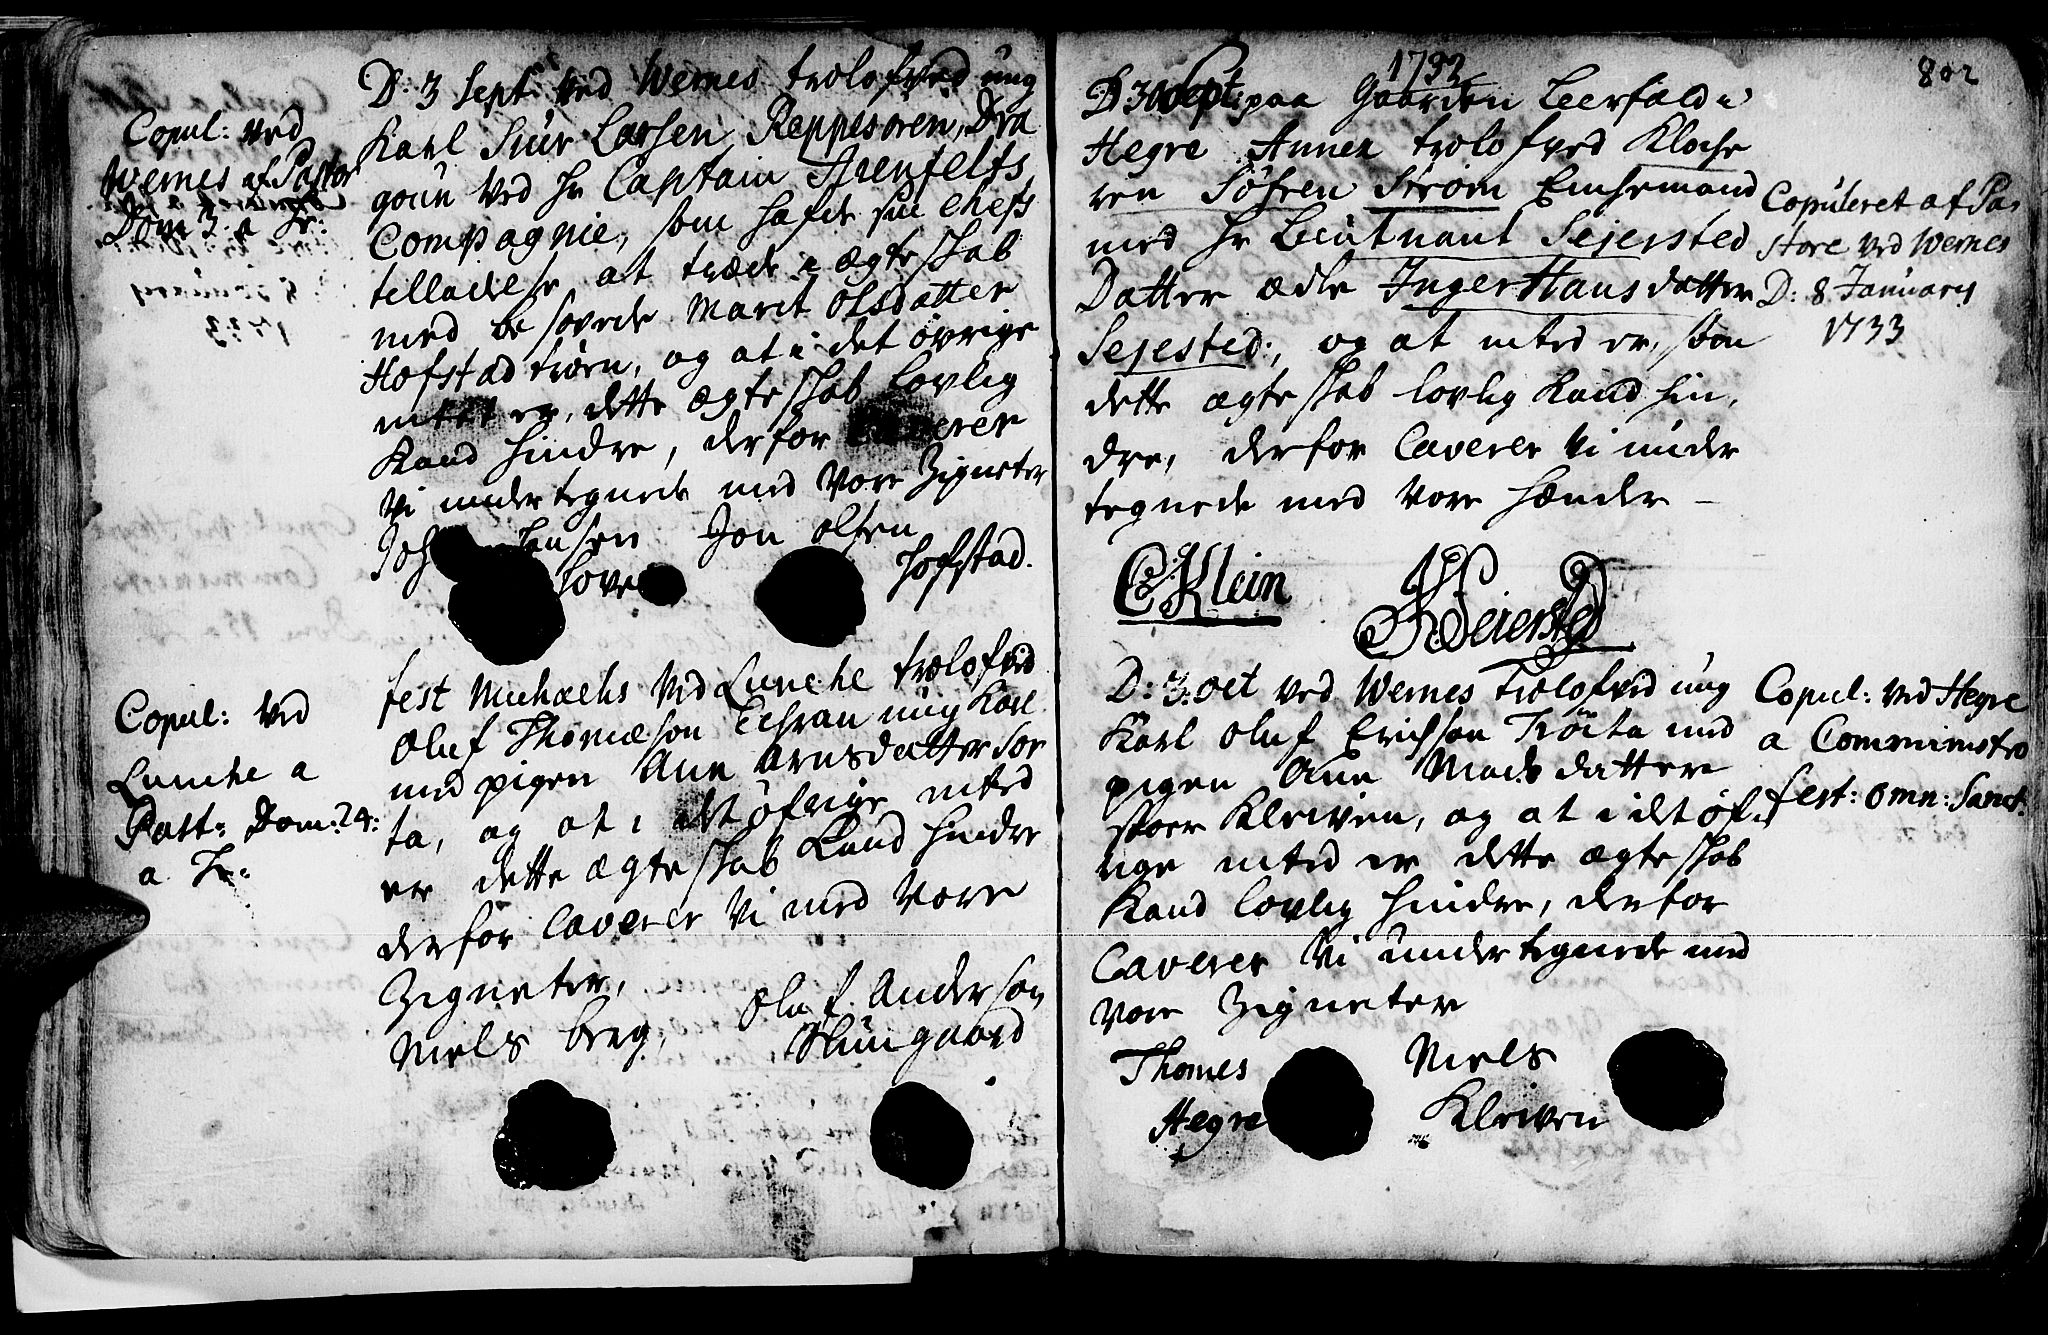 Copul: ved
Wernes af Pastor
Dom 3. a Tr:
D: 3 Sept: ved Wernes trolofved ung
Karl Siur Larsen Reppesøren, Dra
goun ved Hr Captain Arenfelts
Compagnie, som hafde sin chefs
tilladelse at træde i ægteskab
med besovede Marit Olsdatter
Hofstad tiørn, og at i det øvrige
intet er, dette ægteskab lovlig
Kand hindre, derfor Caverer
Vi undertegnede med Vore Zigneter
Joh Hansen Jon Olsen
Hove Hofstad.
Copul: ved
Luncke a
Past: Dom: 24:
a Tr:
fest Michaelis ved Luncke trolofvid
Oluf Thomæson Echran ung Karl
med pigen Ane Arnsdatter Sor
ta, og at i det øfrige inted
er dette ægteskab Kand hindre
derfor Caverer Vi med Vore
Zigneter,
Niels berg, Oluf Anderson
Skiungaard
1732
802
D: 30 Sept: paa Gaarden Leerfald i
Hegre Annex trolofved Klocke
ren Søfren Strøm Enchemand
med Hr Lieutnant Sejersted
Datter ædle Inger Hansdatter
Sejested:, og at inted er, som
dette ægteskab lovlig Kand hin,
dre, derfor Caverer Vi under
tegnede med Vore Hænder –
CKlein Seiersted
Copuleret af Pa,
store ved Wernes
D: 8 Januarij
1733
D: 3: oct ved Wernes Trolofvid ung
Karl Oluf Ericksen Trøita med
pigen Ane Madsdatter
stoer Kleiven, og at i det øf,
rige inted er dette ægteskab
Kand lovlig Hindre, derfor
Caverer Vi undertegnede med
Vore Zigneter
Thomes Niels
Hegre Kleiven
Copul: ved Hegre
a Comministro
fest: omn: Sanct.